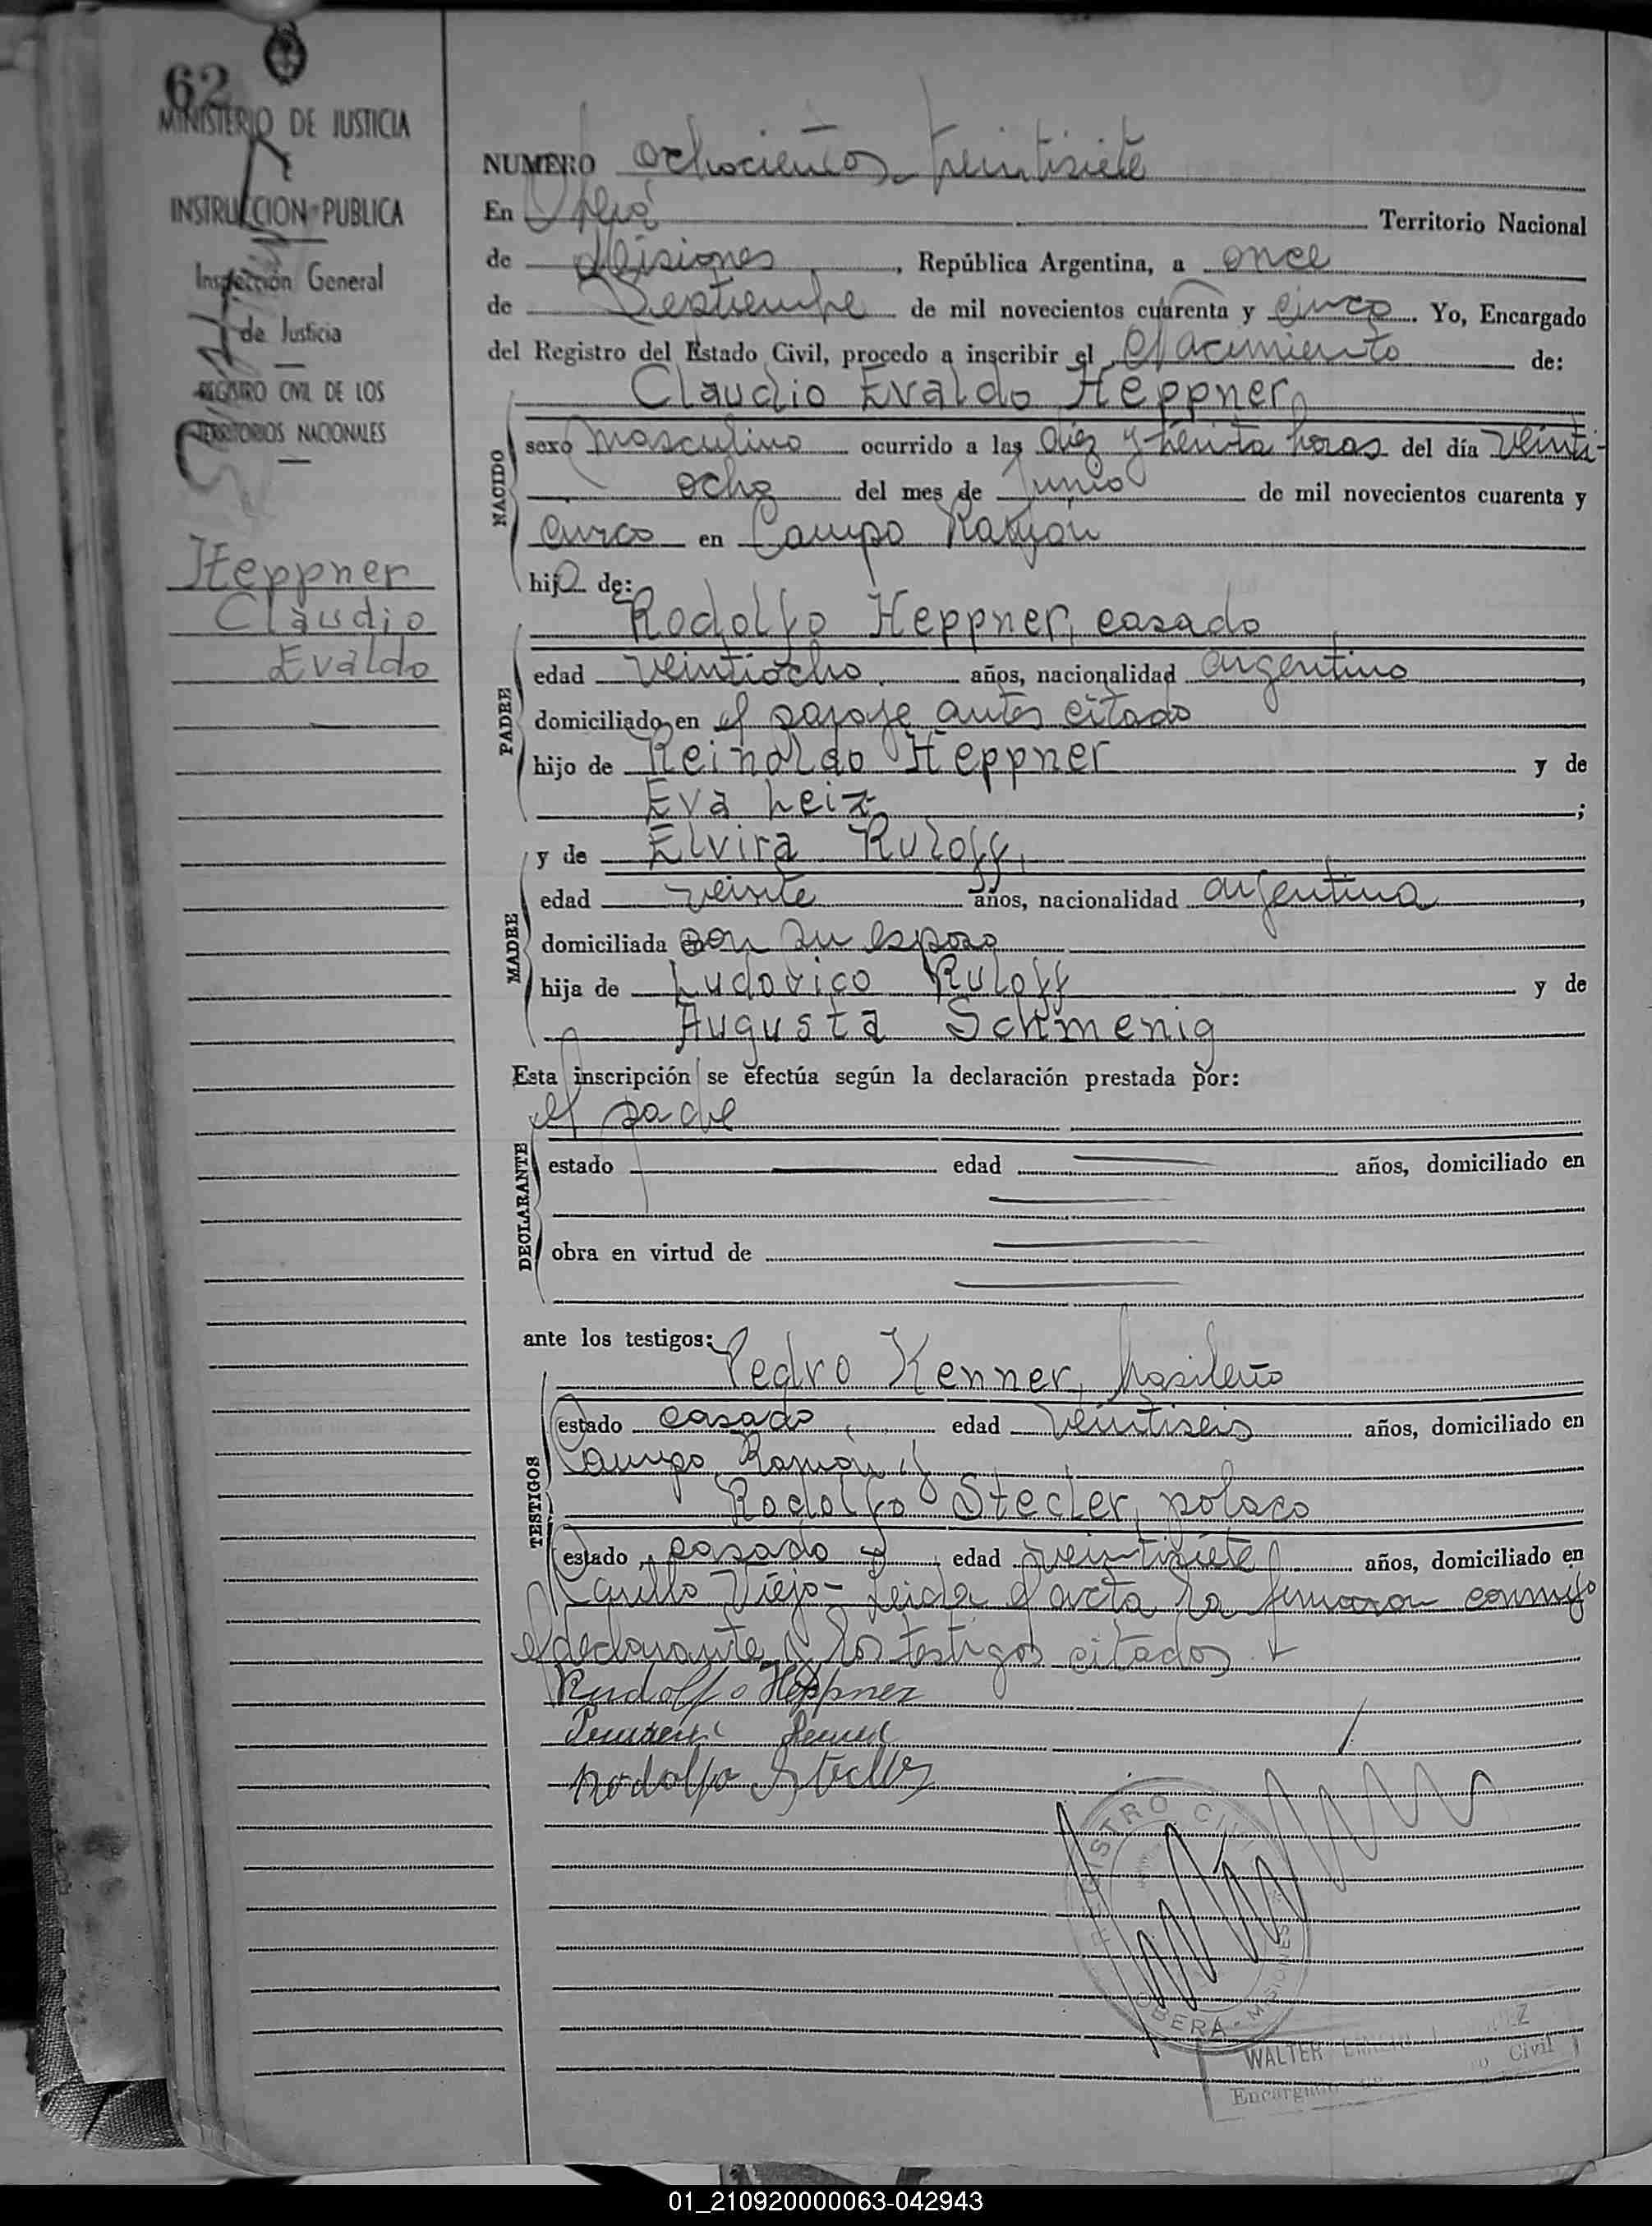 62
MINISTERIO DE JUSTICIA
INSTRUCCION PUBLICA
Inspección General
de Justicia
REGISTRO CIVIL DE LOS
TERRITORIOS NACIONALES
Heppner
Claudio
Evaldo
NUMERO ochocientos treintisiete
En Oberá Territorio Nacional
de Misiones, República Argentina, a once
de Septiembre de mil novecientos cuarenta y cinco. Yo, Encargado
del Registro del Estado Civil, procedo a inscribir el Nacimiento de:
Claudio Evaldo Heppner
NACIDO
sexo masculino ocurrido a las diez y treinta horas del día veinti-
ocho del mes de Junio de mil novecientos cuarenta y
cinco en Campo Ramón
hijo de:
Rodolfo Heppner, casado
PADRE
edad veintiocho años, nacionalidad argentino,
domiciliado en el paraje antes citado
hijo de Reinaldo Heppner y de
Eva Leiz;
y de Elvira Ruloff,
MADRE
edad veinte años, nacionalidad argentina,
domiciliada con su esposo
hija de Ludovico Ruloff y de
Augusta Schmenig
Esta inscripción se efectúa según la declaración prestada por:
el padre
DECLARANTE
estado edad años, domiciliado en
obra en virtud de
ante los testigos:
Pedro Kenner, brasileño
TESTIGOS
estado casado, edad veintiseis años, domiciliado en
Campo Ramón y
Rodolfo Stecler, polaco
estado, casado, edad veintisiete años, domiciliado en
Viejo - Leida el acta la firmaron conmigo
el declarante y los testigos citados
Rudolfo Heppner
Rodolfo Stecler
REGISTRO CIVIL
OBERA - MISIONES
WALTER
Encargado Civil
01_210920000063-042943